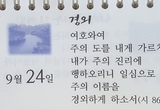 경외
여호와여
주의 도를 내게 가르쳐
내가 주의 진리에
행하오리니 일심으로
주의 이름을
경외하게 하소서(시 8
9월 24일